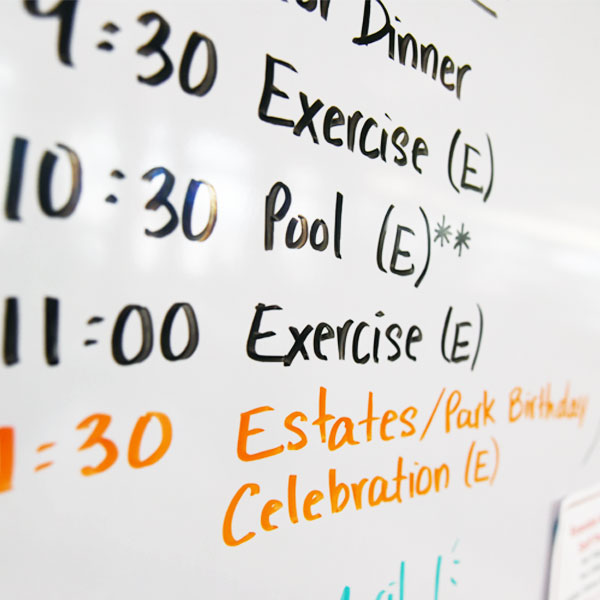 Dinner
9:30 Exercise (E)
10:30 Pool (E)**
11:00 Exercise (E)
1:30 Estates/Park Birthday
Celebration (E)